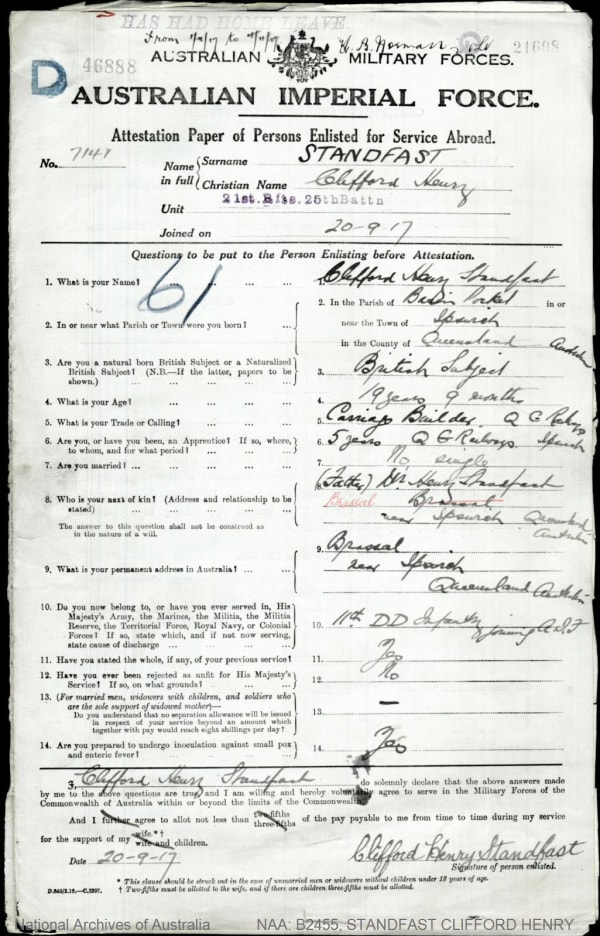 HAS HAD HOME LEAVE
From to
46888
21698
AUSTRALIAN MILITARY FORCES.
D
AUSTRALIAN IMPERIAL FORCE.
Attestation Paper of Persons Enlisted for Service Abroad.
No. 7141
Name in full { Surname STANDFAST
Christian Name Clifford Henry
Unit 21st.Rfts.25thBattn
Joined on 20-9-17
Questions to be put to the Person Enlisting before Attestation.
61
1. What is your Name? ... ... ... ... 1. Clifford Henry Standfast
2. In or near what Parish or Town were you born? ... 2. In the Parish of Basin Pocket in or
near the Town of Ipswich
in the County of Queensland Australia
3. Are you a natural born British Subject or a Naturalized
British Subject? (N.B.—If the latter, papers to be
shown.) ... ... ... ... 3. British Subject
4. What is your Age? ... ... ... ... 4. 19 years 9 months
5. What is your Trade or Calling? ... ... ... 5. Carriage Builder Q G Railways
6. Are you, or have you been, an Apprentice? If so, where,
to whom, and for what period? ... ... ... 6. 5 years Q G Railways Ipswich
7. Are you married? ... ... ... ... 7. No single
8. Who is your next of kin? (Address and relationship to be
stated) ... ... ... ... 8. (Father) Henry Standfast
Brassal Brassal
near Ipswich Queensland
Australia
The answer to this question shall not be construed as
in the nature of a will.
9. What is your permanent address in Australia? ... ... 9. Brassal
near Ipswich
Queensland Australia
10. Do you now belong to, or have you ever served in, His
Majesty's Army, the Marines, the Militia, the Militia
Reserve, the Territorial Force, Royal Navy, or Colonial
Forces? If so, state which, and if not now serving,
state cause of discharge ... ... ... 10. 11th DD Infantry joining A.I.F
11. Have you stated the whole, if any, of your previous service? 11. Yes
12. Have you ever been rejected as unfit for His Majesty's
Service? If so, on what grounds? ... ... 12. No
13. (For married men, widowers with children, and soldiers who
are the sole support of widowed mother)—
Do you understand that no separation allowance will be issued
in respect of your service beyond an amount which
together with pay would reach eight shillings per day? 13. –
14. Are you prepared to undergo inoculation against small pox
and enteric fever? ... ... ... ... 14. Yes
I, Clifford Henry Standfast do solemnly declare that the above answers made
by me to the above questions are true, and I am willing and hereby voluntarily agree to serve in the Military Forces of the
Commonwealth of Australia within or beyond the limits of the Commonwealth.
And I further agree to allot not less than two-fifths three-fifths of the pay payable to me from time to time during my service
for the support of my wife.*† wife and children.
Date 20-9-17
Clifford Henry Standfast
Signature of person enlisted.
* This clause should be struck out in the case of unmarried men or widowers without children under 18 years of age.
† Two-fifths must be allotted to the wife, and if there are children three-fifths must be allotted.
National Archives of Australia
NAA: B2455, STANDFAST CLIFFORD HENRY